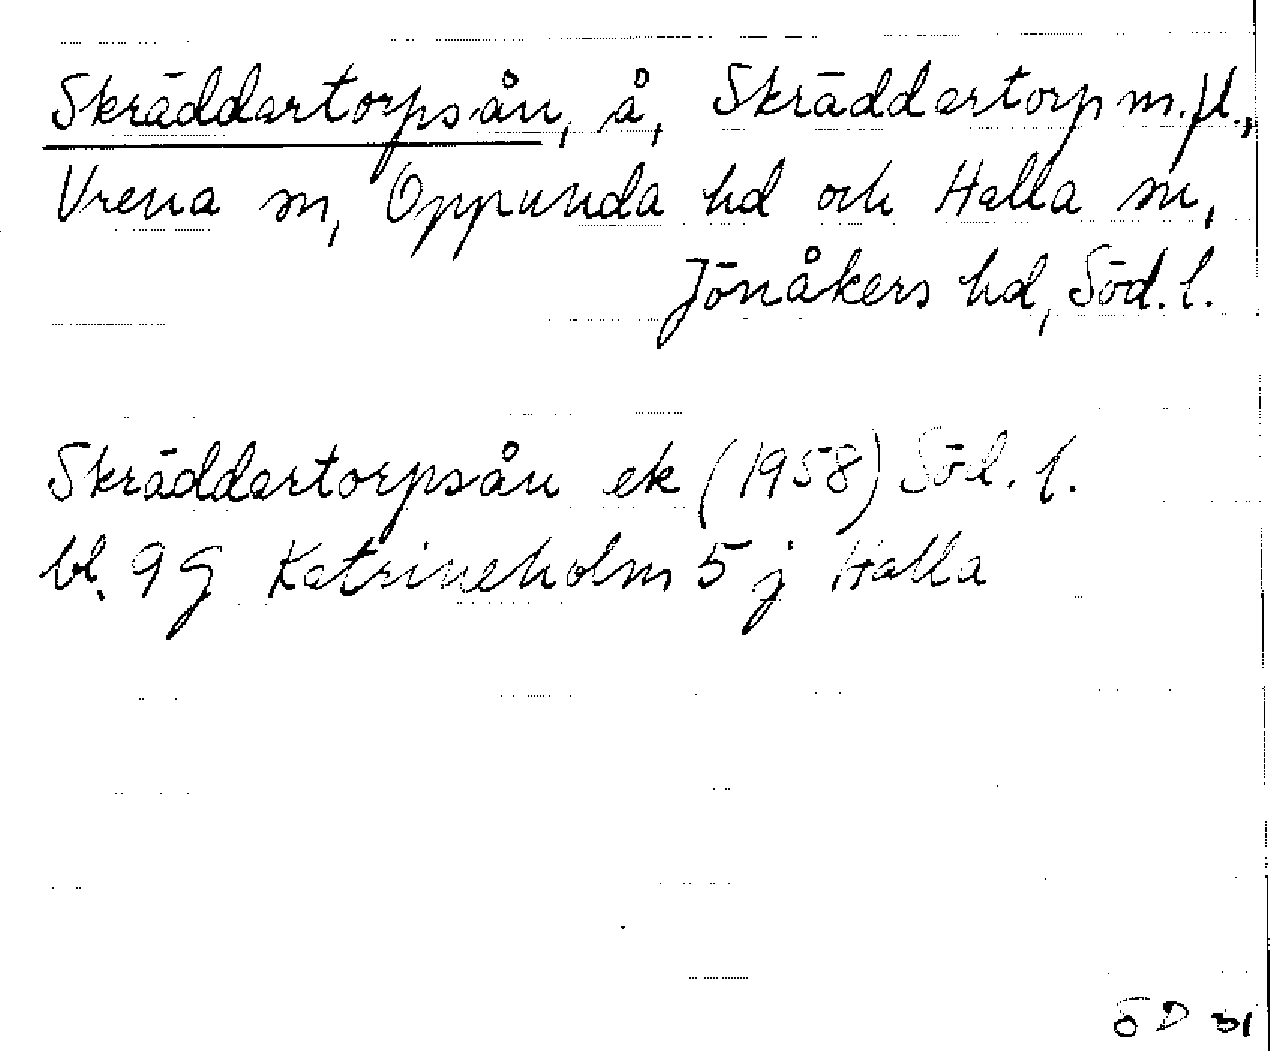 Skräddartorpsån, å, Skräddartorp m.fl.,
Vrena sn, Oppunda hd och Halla sn,
Jönåkers hd, Söd. l.
Skräddartorpsån ek (1958) Söd. l.
bl. 9 G Katrineholm 5 j Halla
ÖD 31